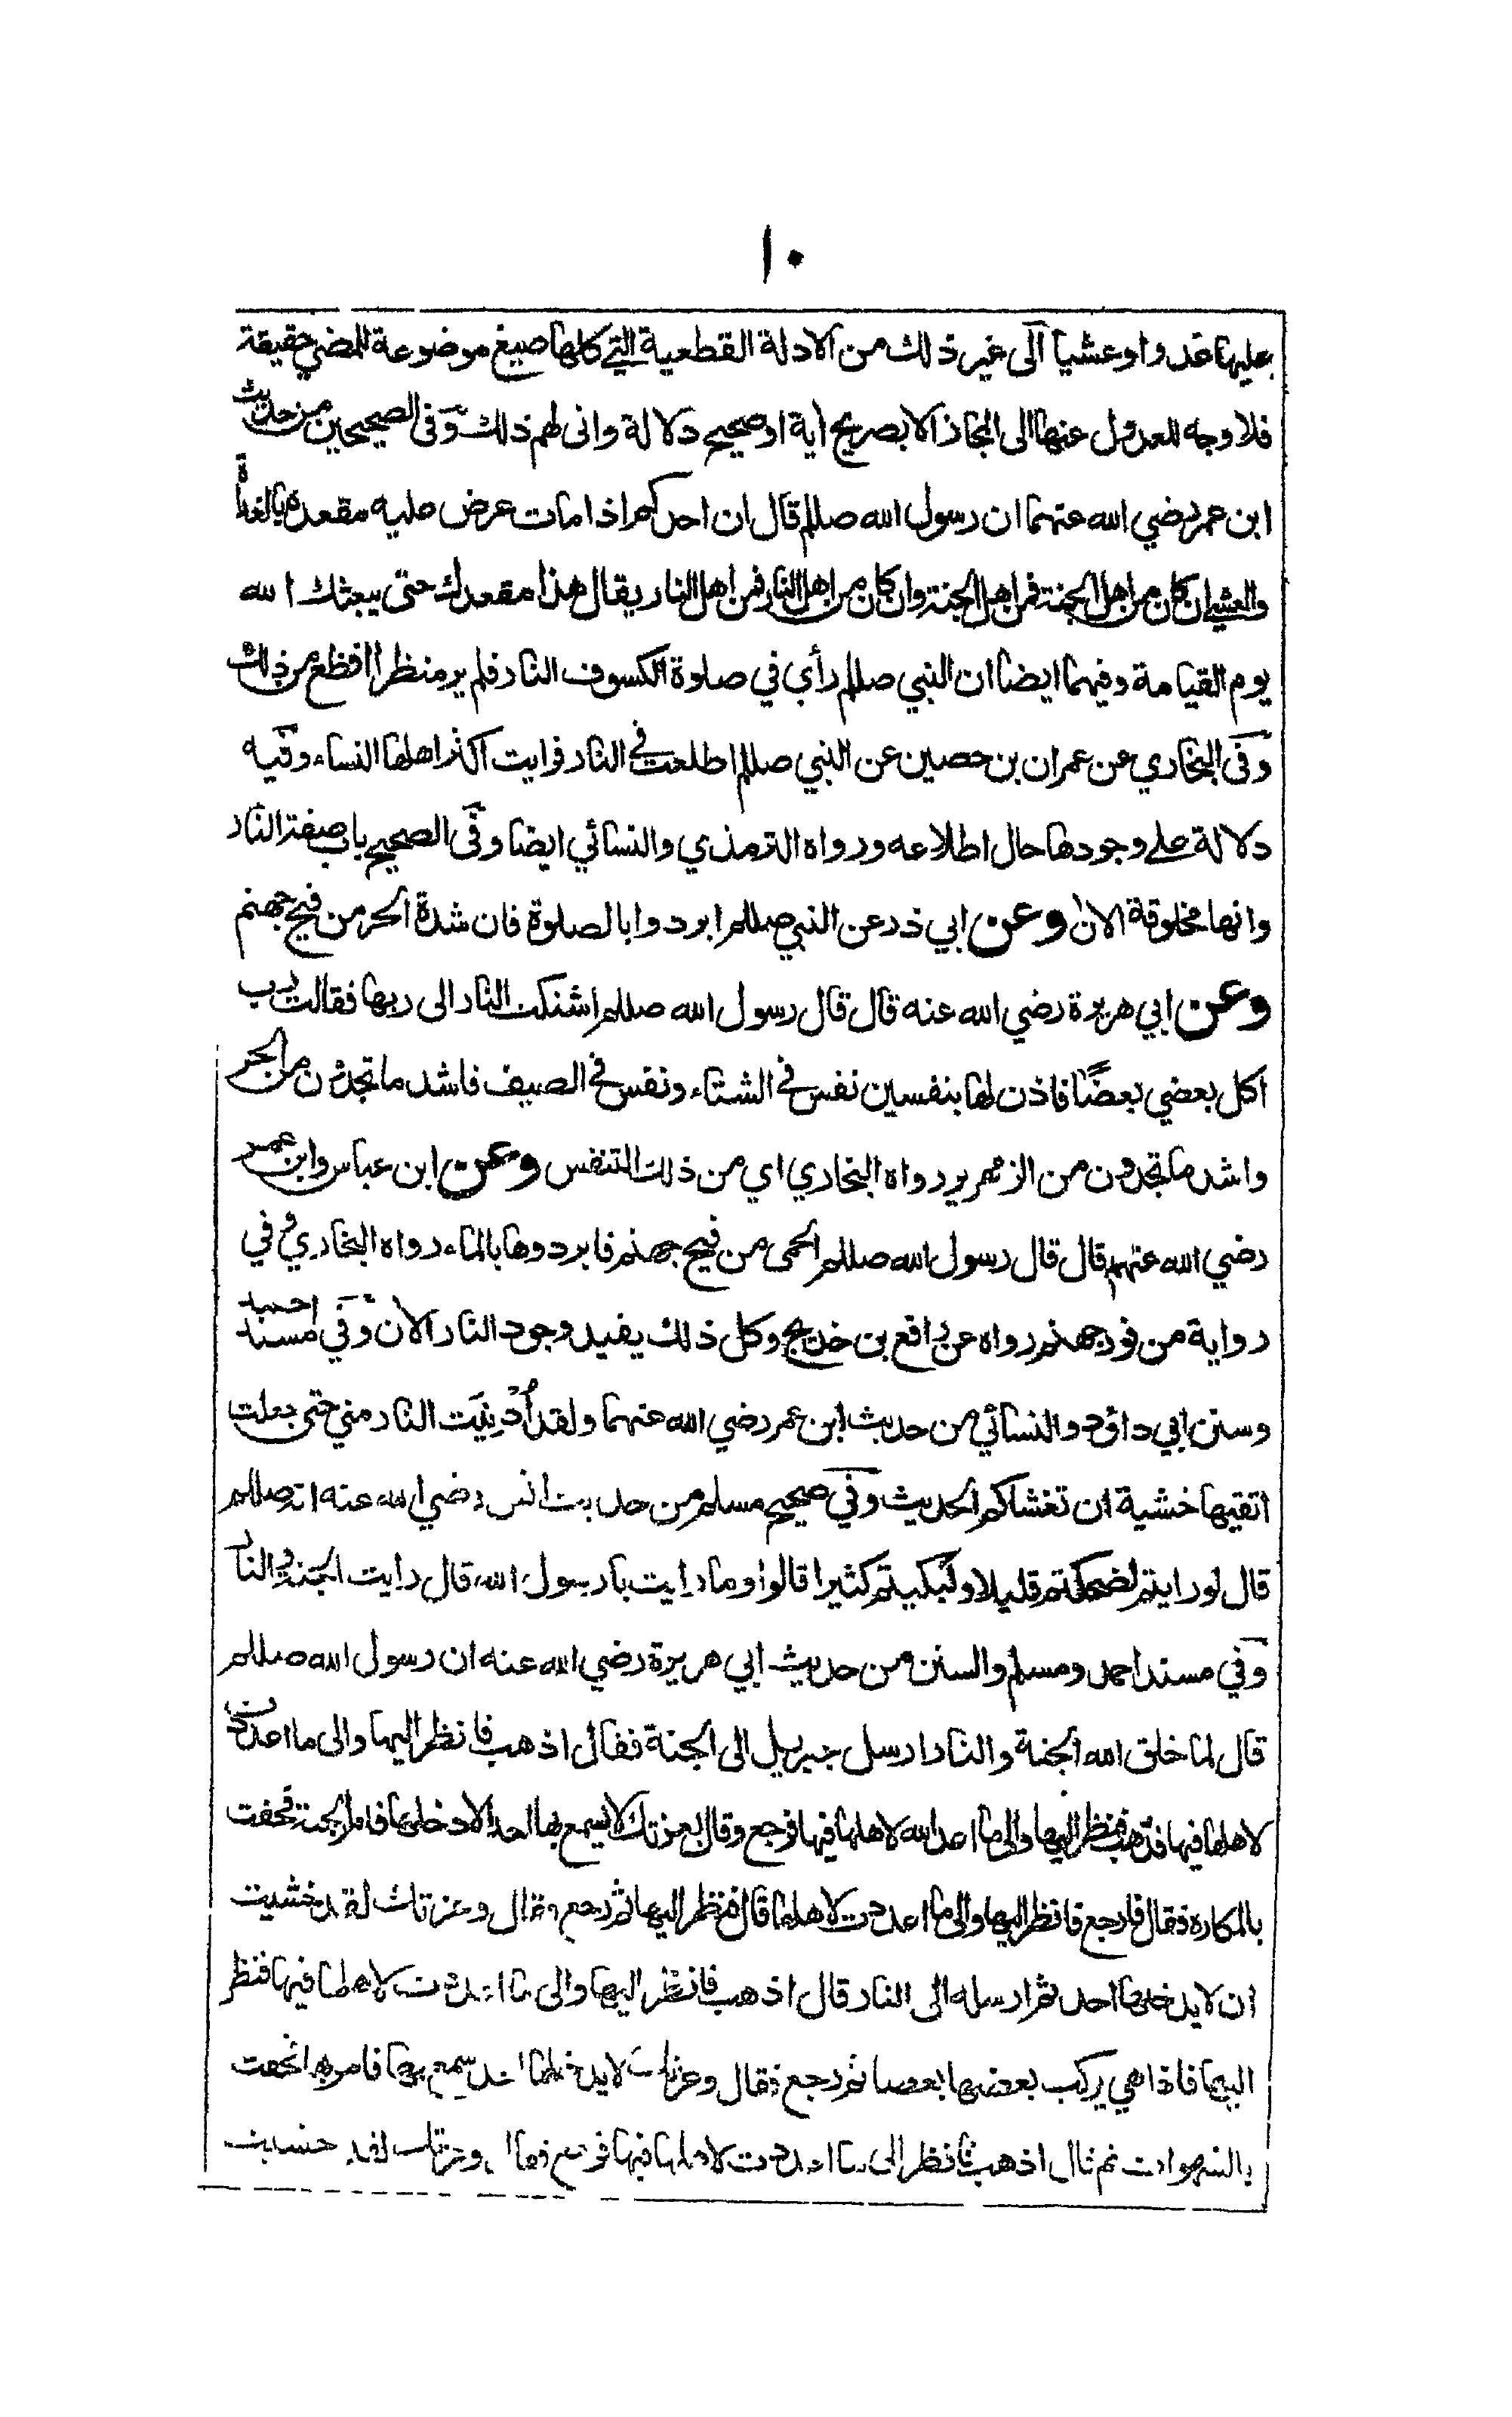 ١٠
عليها غدوا وعشيا الى غير ذلك من الادلة القطعية التي كلها صيغ موضوعة للمضي حقيقة
فلا وجه للعدول عنها الى المجاز الا بصريح اية او صحيح دلالة وانى لهم ذلك وفى الصحيحين من حديث
ابن عمر رضي الله عنهما ان رسول الله صللم قال ان احدكم اذا مات عرض عليه مقعده بالغداة
والعشي ان كان من اهل الجنة فمن اهل الجنة وان كان من اهل النار فمن اهل النار يقال هذا مقعدك حتى يبعثك الله
يوم القيامة وفيهما ايضا ان النبي صللم رأي في صلوة الكسوف النار فلم ير منظرا افظع من ذلك
وفى البخاري عن عمران بن حصين عن النبي صللم اطلعت في النار فرايت اكثر اهلها النساء وفيه
دلالة على وجودها حال اطلاعه ورواه الترمذي والنسائي ايضا وفى الصحيح باب صفة النار
وانها مخلوقة الان وعن ابي ذر عن النبي صللم ابردوا بالصلوة فان شدة الحر من فيح جهنم
وعن ابي هريرة رضي الله عنه قال قال رسول الله صللم اشتكت النار الى ربها فقالت رب
اكل بعضي بعضًا فاذن لها بنفسين نفس في الشتاء ونفس في الصيف فاشد ما تجدون من الحر
واشد ما تجدون من الزمهرير رواه البخاري اي من ذلك التنفس وعن ابن عباس وابن عمر
رضي الله عنهم قال قال رسول الله صللم الحمى من فيح جهنم فابردوها بالماء رواه البخاري وفي
رواية من فور جهنم رواه عن رافع بن خديج وكل ذلك يفيد وجود النار الان وفي مسند احمد
وسنن ابي داؤد والنسائي من حديث ابن عمر رضي الله عنهما ولقد أُدْنِيَت النار مني حتى جعلت
اتقيها خشية ان تغشاكم الحديث وفي صحيح مسلم من حديث انس رضي الله عنه انه صللم
قال لو رايتم لضحكتم قليلا ولبكيتم كثيرا قالوا وما رايت يا رسول الله قال رايت الجنة والنار
وفي مسند احمد ومسلم والسنن من حديث ابي هريرة رضي الله عنه ان رسول الله صللم
قال لما خلق الله الجنة والنار ارسل جبريل الى الجنة فقال اذهب فانظر اليها والى ما اعددت
لاهلها فيها فذهب فنظر اليها والى ما اعد الله لاهلها فيها فرجع وقال بعزتك لا يسمع بها احد الا دخلها فامر بالجنة فحفت
بالمكاره فقال فارجع فانظر اليها والى ما اعددت لاهلها قال فنظر اليها ثم رجع فقال وعزتك لقد خشيت
ان لا يدخلها احد ثم ارسله الى النار قال اذهب فانظر اليها والى ما اعددت لاهلها فيها فنظر
اليها فاذا هي يركب بعضها بعضا ثم رجع فقال وعزتك لا يدخلها احد سمع بها فامر بها فحفت
بالشهوات ثم قال اذهب فانظر الى ما اعددت لاهلها فيها فرجع فقال وعزتك لقد خشيت